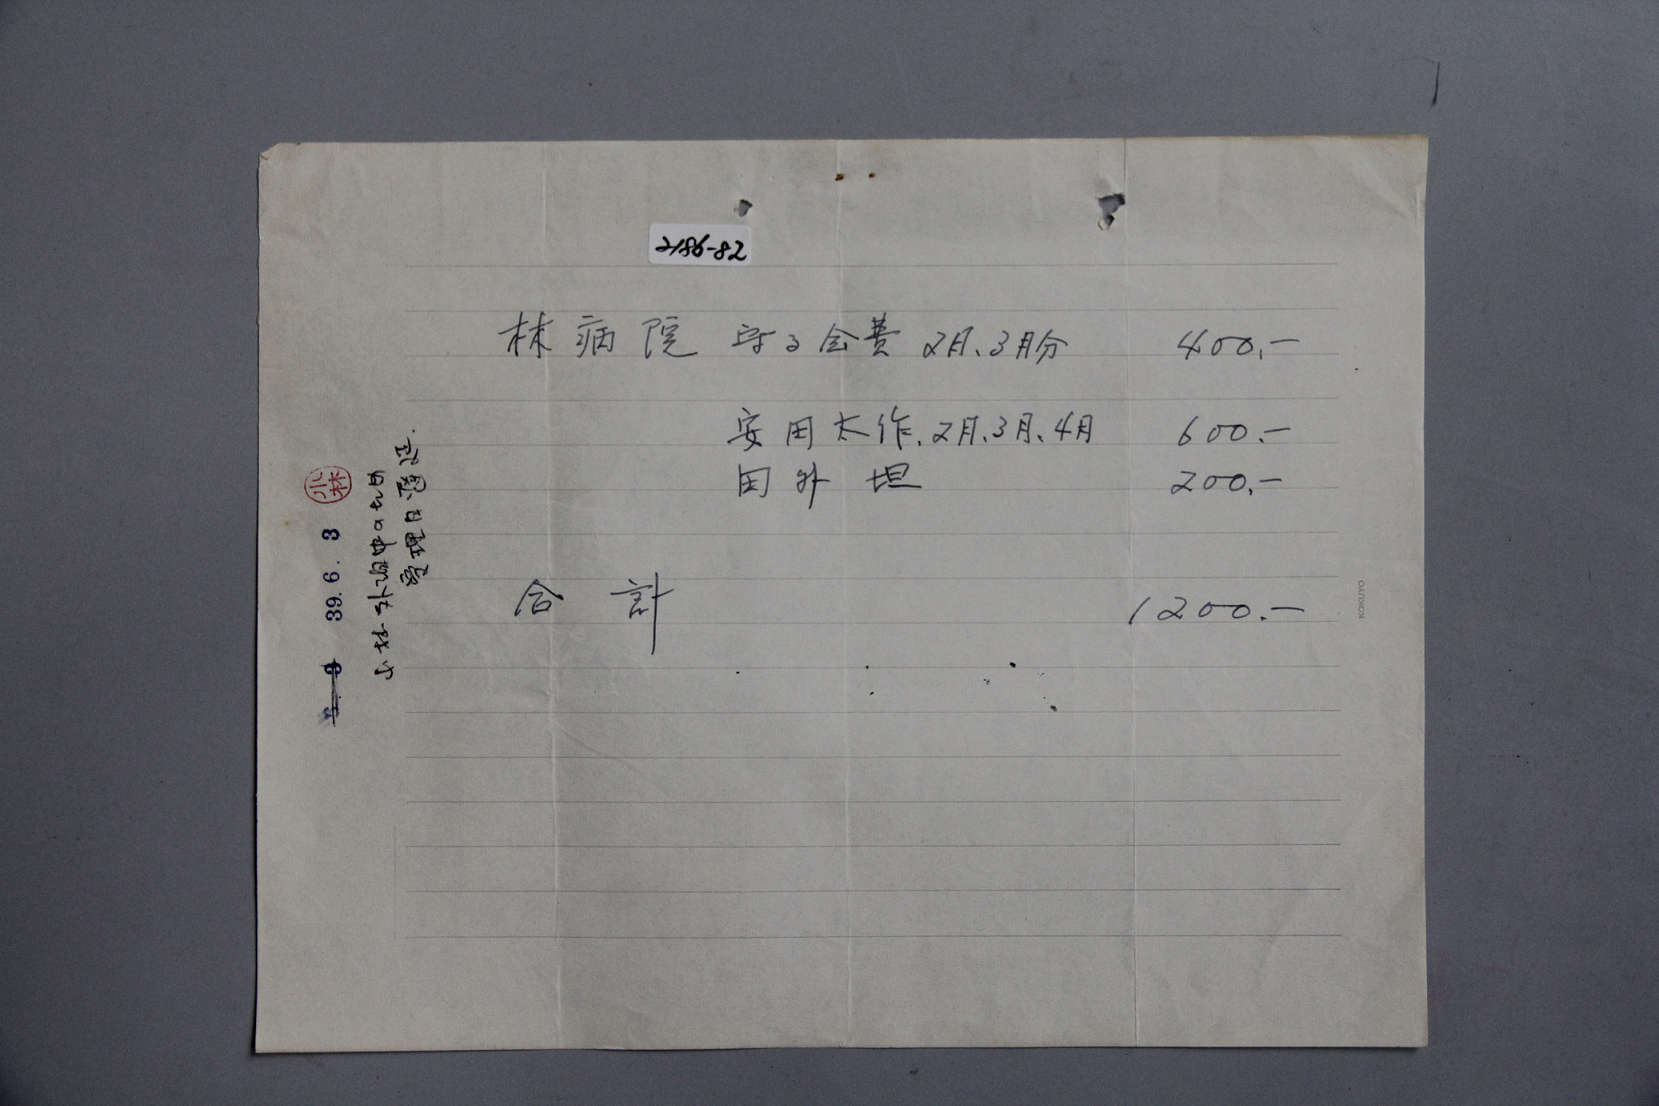 2186-82
林病院 守る会費 2月、3月分 400.-
安田太作、2月、3月、4月 600.-
田外 坦 200.-
合計 1200.-
小林
39.6.3